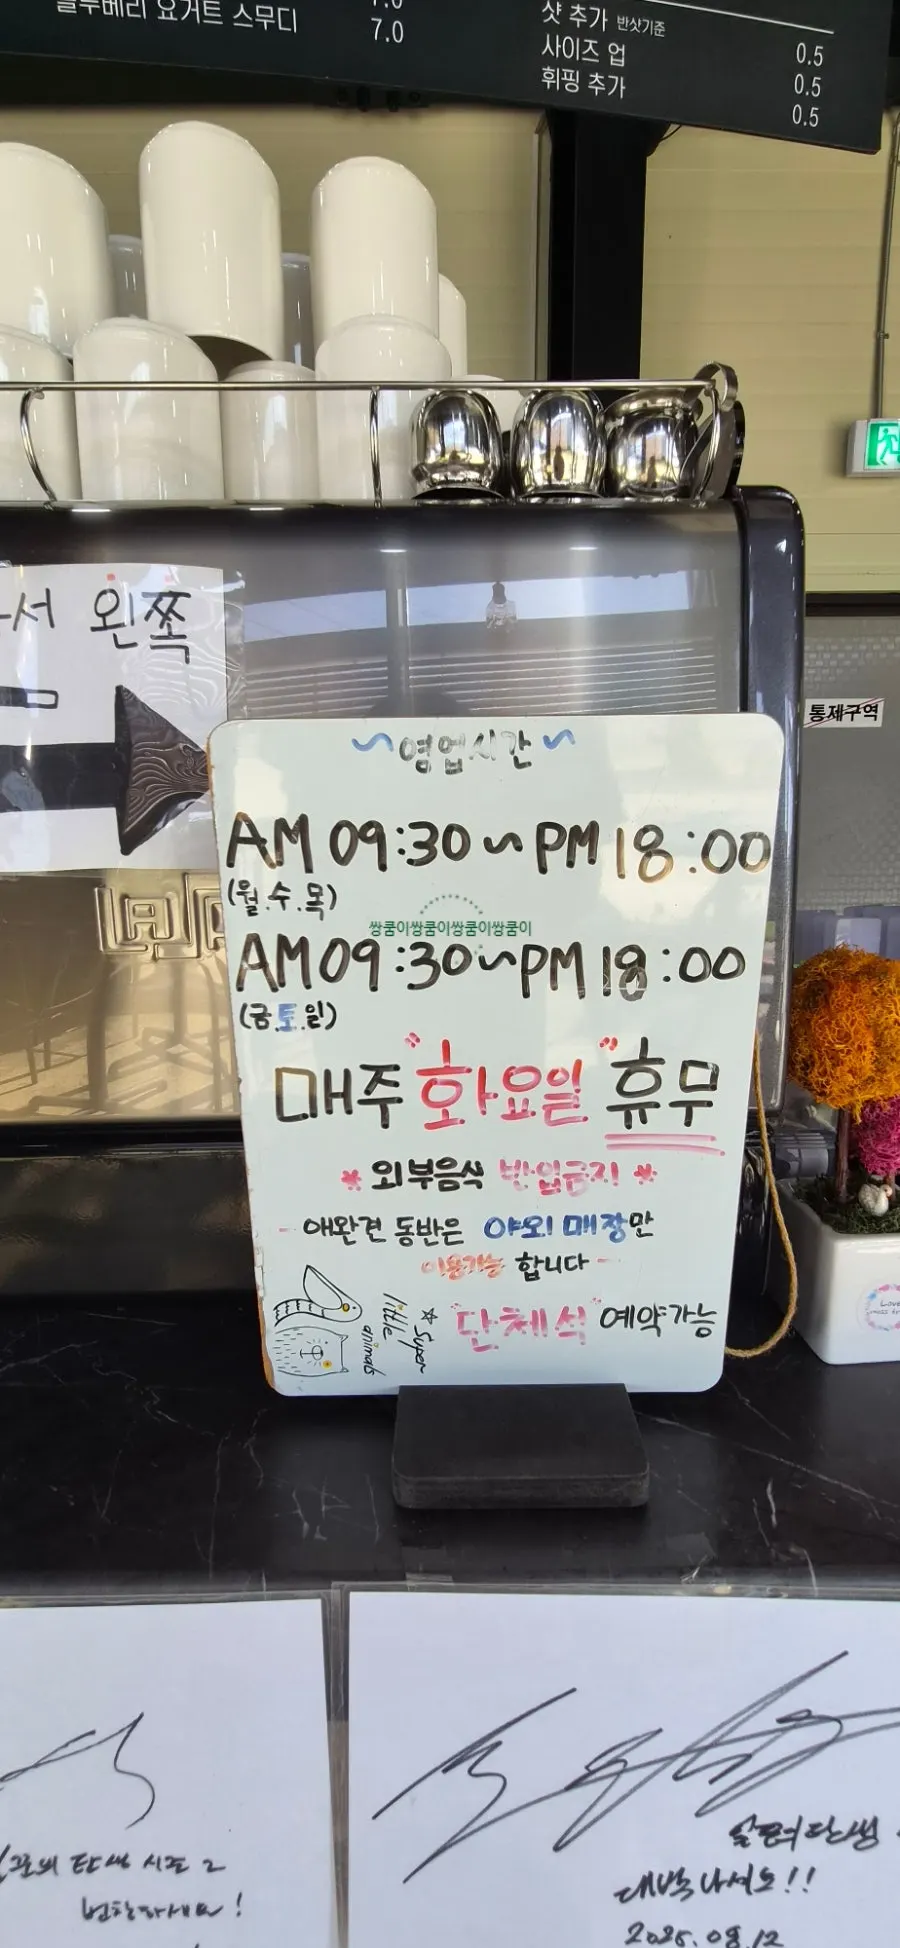 블루베리 요거트 스무디 7.0
샷 추가 반샷기준 0.5
사이즈 업 0.5
휘핑 추가 0.5
서 왼쪽
통제구역
~영업시간~
AM 09:30 ~ PM 18:00
(월.수.목)
쌍쿰이쌍쿰이쌍쿰이쌍쿰이
AM 09:30 ~ PM 18:00
(금.토.일)
매주 "화요일" 휴무
* 외부음식 반입금지 *
- 애완견 동반은 야외 매장만
이용가능 합니다 -
"단체식" 예약가능
little
☆ super
animals
Love
탄생 시즌 2
번창하세요!
탄생
대박나세요!!
2025.08.12